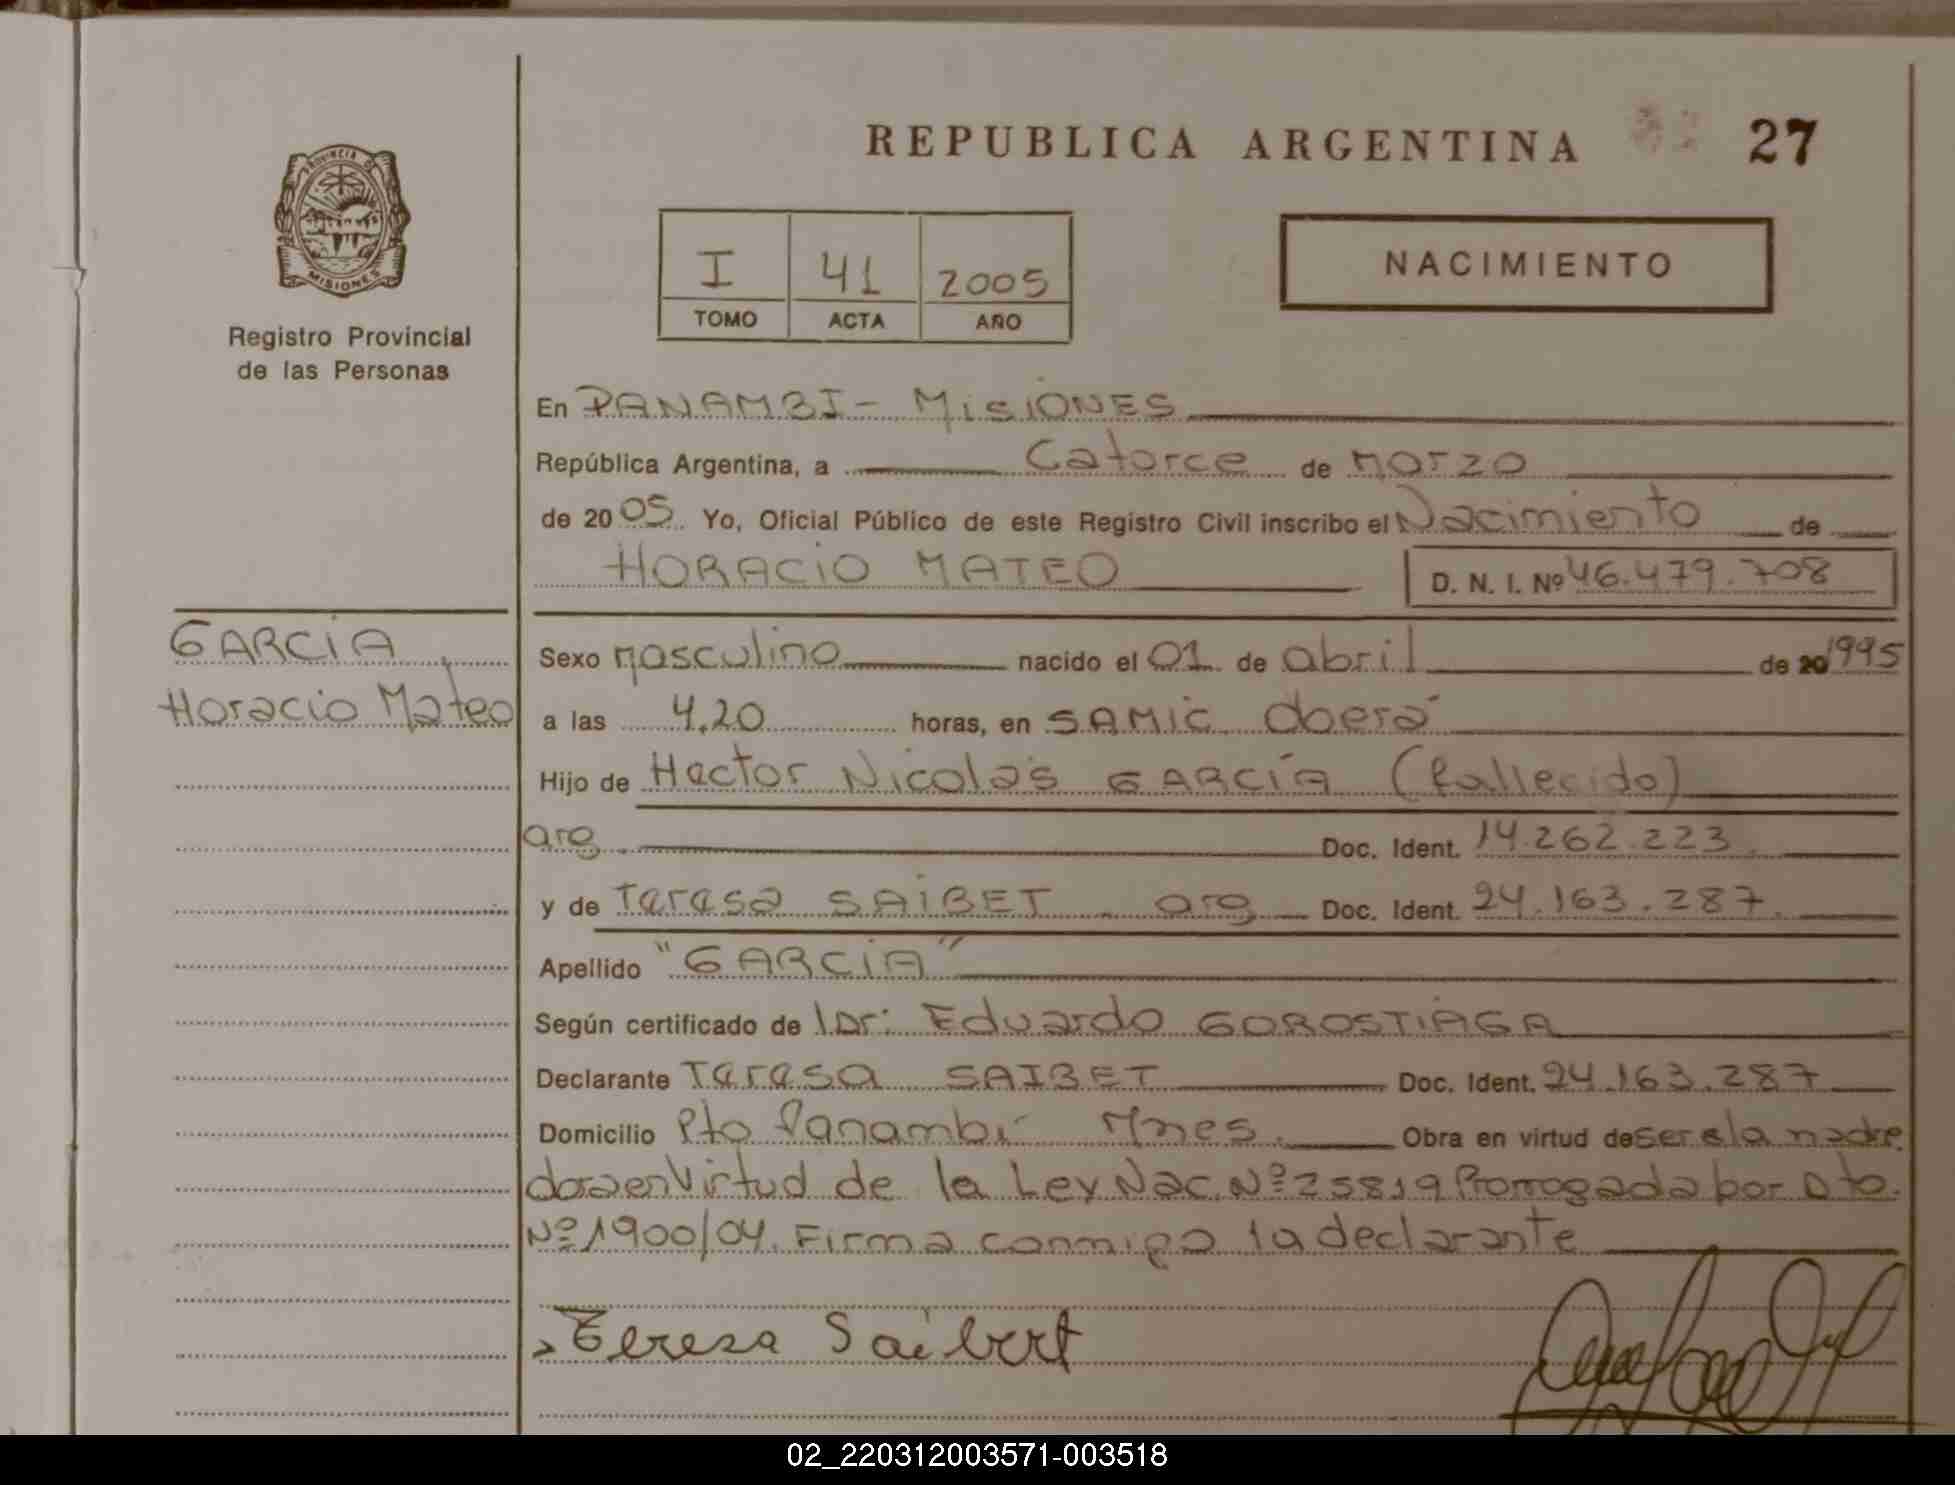 REPUBLICA ARGENTINA 27
PROVINCIA DE
MISIONES
Registro Provincial
de las Personas
I 41 2005
TOMO ACTA AÑO
NACIMIENTO
En PANAMBI - MISIONES
República Argentina, a Catorce de Marzo
de 2005. Yo, Oficial Público de este Registro Civil inscribo el Nacimiento de
HORACIO MATEO D. N. I. Nº 46.479.708
GARCIA
Horacio Mateo
Sexo Masculino nacido el 01 de abril de 20 1995
a las 4.20 horas, en SAMIC Oberá
Hijo de Hector Nicolás GARCÍA (fallecido)
arg. Doc. Ident. 14.262.223.
y de Teresa SAIBET arg Doc. Ident. 24.163.287.
Apellido "GARCIA"
Según certificado de Dr: Eduardo GOROSTIAGA
Declarante Teresa SAIBET Doc. Ident. 24.163.287
Domicilio Pto Panambí Mnes. Obra en virtud de ser la madre
en Virtud de la Ley Nac. Nº 25819 Prorrogada por Dto.
Nº 1900/04. Firma conmigo la declarante
Teresa Saibert
02_220312003571-003518